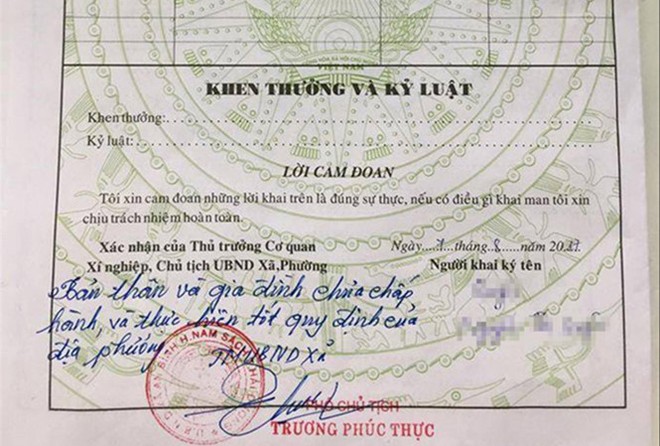 VIỆT NAM
KHEN THƯỞNG VÀ KỶ LUẬT
Khen thưởng:
Kỷ luật:
LỜI CAM ĐOAN
Tôi xin cam đoan những lời khai trên là đúng sự thực, nếu có điều gì khai man tôi xin
chịu trách nhiệm hoàn toàn.
Xác nhận của Thủ trưởng Cơ quan
Xí nghiệp, Chủ tịch UBND Xã,Phường
Ngày....1...tháng..8......năm 2017
Người khai ký tên
Bản thân và gia đình chưa chấp
hành và thực hiện tốt quy định của
địa phương
TM UBND Xã
U.B.N.D X. AN BÌNH H.NAM SÁCH T. HẢI DƯƠNG
PHÓ CHỦ TỊCH
TRƯƠNG PHÚC THỰC